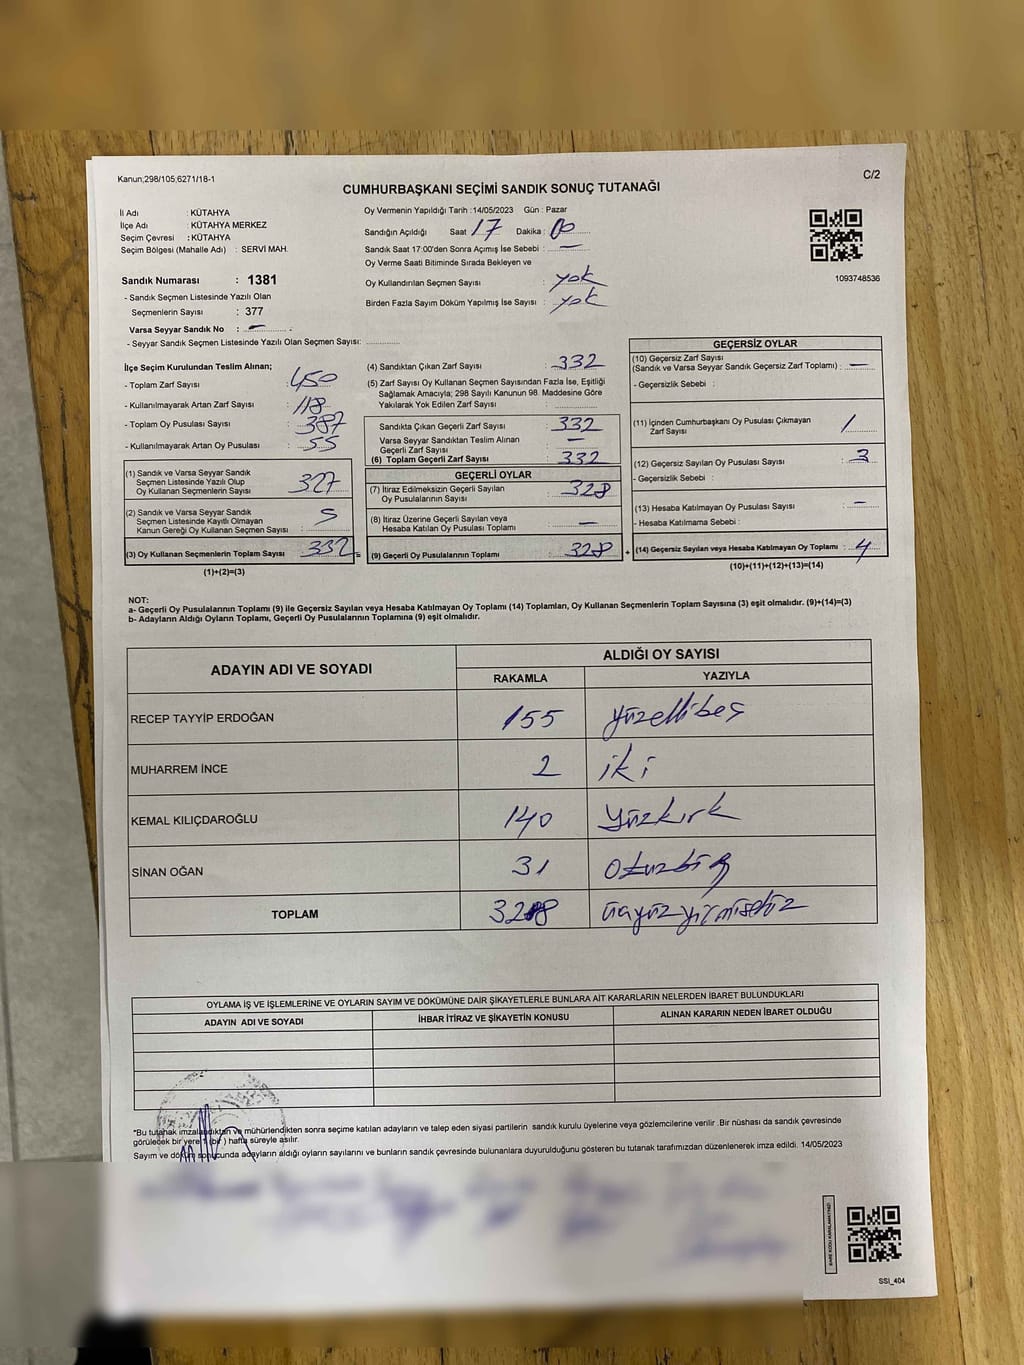 Kanun;298/105,6271/18-1
C/2
CUMHURBAŞKANI SEÇİMİ SANDIK SONUÇ TUTANAĞI
İl Adı : KÜTAHYA
İlçe Adı : KÜTAHYA MERKEZ
Seçim Çevresi : KÜTAHYA
Seçim Bölgesi (Mahalle Adı) : SERVİ MAH.
Sandık Numarası : 1381
- Sandık Seçmen Listesinde Yazılı Olan
Seçmenlerin Sayısı : 377
Varsa Seyyar Sandık No : —
- Seyyar Sandık Seçmen Listesinde Yazılı Olan Seçmen Sayısı:
Oy Vermenin Yapıldığı Tarih :14/05/2023 Gün : Pazar
Sandığın Açıldığı Saat 17 Dakika : 00
Sandık Saat 17:00'den Sonra Açımış İse Sebebi : —
Oy Verme Saati Bitiminde Sırada Bekleyen ve
Oy Kullandırılan Seçmen Sayısı : yok
Birden Fazla Sayım Döküm Yapılmış İse Sayısı : yok
1093748536
İlçe Seçim Kurulundan Teslim Alınan;
- Toplam Zarf Sayısı : 450
- Kullanılmayarak Artan Zarf Sayısı : 118
- Toplam Oy Pusulası Sayısı : 387
- Kullanılmayarak Artan Oy Pusulası : 55
(1) Sandık ve Varsa Seyyar Sandık
Seçmen Listesinde Yazılı Olup
Oy Kullanan Seçmenlerin Sayısı : 327
(2) Sandık ve Varsa Seyyar Sandık
Seçmen Listesinde Kayıtlı Olmayan
Kanun Gereği Oy Kullanan Seçmen Sayısı : 5
(3) Oy Kullanan Seçmenlerin Toplam Sayısı : 332 =
(1)+(2)=(3)
(4) Sandıktan Çıkan Zarf Sayısı : 332
(5) Zarf Sayısı Oy Kullanan Seçmen Sayısından Fazla İse, Eşitliği
Sağlamak Amacıyla; 298 Sayılı Kanunun 98. Maddesine Göre
Yakılarak Yok Edilen Zarf Sayısı :
Sandıkta Çıkan Geçerli Zarf Sayısı : 332
Varsa Seyyar Sandıktan Teslim Alınan
Geçerli Zarf Sayısı : —
(6) Toplam Geçerli Zarf Sayısı : 332
GEÇERLİ OYLAR
(7) İtiraz Edilmeksizin Geçerli Sayılan
Oy Pusulalarının Sayısı : 328
(8) İtiraz Üzerine Geçerli Sayılan veya
Hesaba Katılan Oy Pusulası Toplamı : —
(9) Geçerli Oy Pusulalarının Toplamı : 328 +
GEÇERSİZ OYLAR
(10) Geçersiz Zarf Sayısı
(Sandık ve Varsa Seyyar Sandık Geçersiz Zarf Toplamı) : —
- Geçersizlik Sebebi :
(11) İçinden Cumhurbaşkanı Oy Pusulası Çıkmayan
Zarf Sayısı : 1
(12) Geçersiz Sayılan Oy Pusulası Sayısı : 3
- Geçersizlik Sebebi :
(13) Hesaba Katılmayan Oy Pusulası Sayısı : —
- Hesaba Katılmama Sebebi :
(14) Geçersiz Sayılan veya Hesaba Katılmayan Oy Toplamı : 4
(10)+(11)+(12)+(13)=(14)
NOT:
a- Geçerli Oy Pusulalarının Toplamı (9) ile Geçersiz Sayılan veya Hesaba Katılmayan Oy Toplamı (14) Toplamları, Oy Kullanan Seçmenlerin Toplam Sayısına (3) eşit olmalıdır. (9)+(14)=(3)
b- Adayların Aldığı Oyların Toplamı, Geçerli Oy Pusulalarının Toplamına (9) eşit olmalıdır.
ADAYIN ADI VE SOYADI
ALDIĞI OY SAYISI
RAKAMLA YAZIYLA
RECEP TAYYİP ERDOĞAN 155 yüzellibeş
MUHARREM İNCE 2 iki
KEMAL KILIÇDAROĞLU 140 Yüzkırk
SİNAN OĞAN 31 otuzbir
TOPLAM 328 üçyüzyirmisekiz
OYLAMA İŞ VE İŞLEMLERİNE VE OYLARIN SAYIM VE DÖKÜMÜNE DAİR ŞİKAYETLERLE BUNLARA AİT KARARLARIN NELERDEN İBARET BULUNDUKLARI
ADAYIN ADI VE SOYADI İHBAR İTİRAZ VE ŞİKAYETİN KONUSU ALINAN KARARIN NEDEN İBARET OLDUĞU
*Bu tutanak imzalandıktan ve mühürlendikten sonra seçime katılan adayların ve talep eden siyasi partilerin sandık kurulu üyelerine veya gözlemcilerine verilir .Bir nüshası da sandık çevresinde
görülecek bir yere 1 (bir ) hafta süreyle asılır.
Sayım ve döküm sonucunda adayların aldığı oyların sayılarını ve bunların sandık çevresinde bulunanlara duyurulduğunu gösteren bu tutanak tarafımızdan düzenlenerek imza edildi. 14/05/2023
BARE KODU KARALAMAYINIZ!
SSI_404